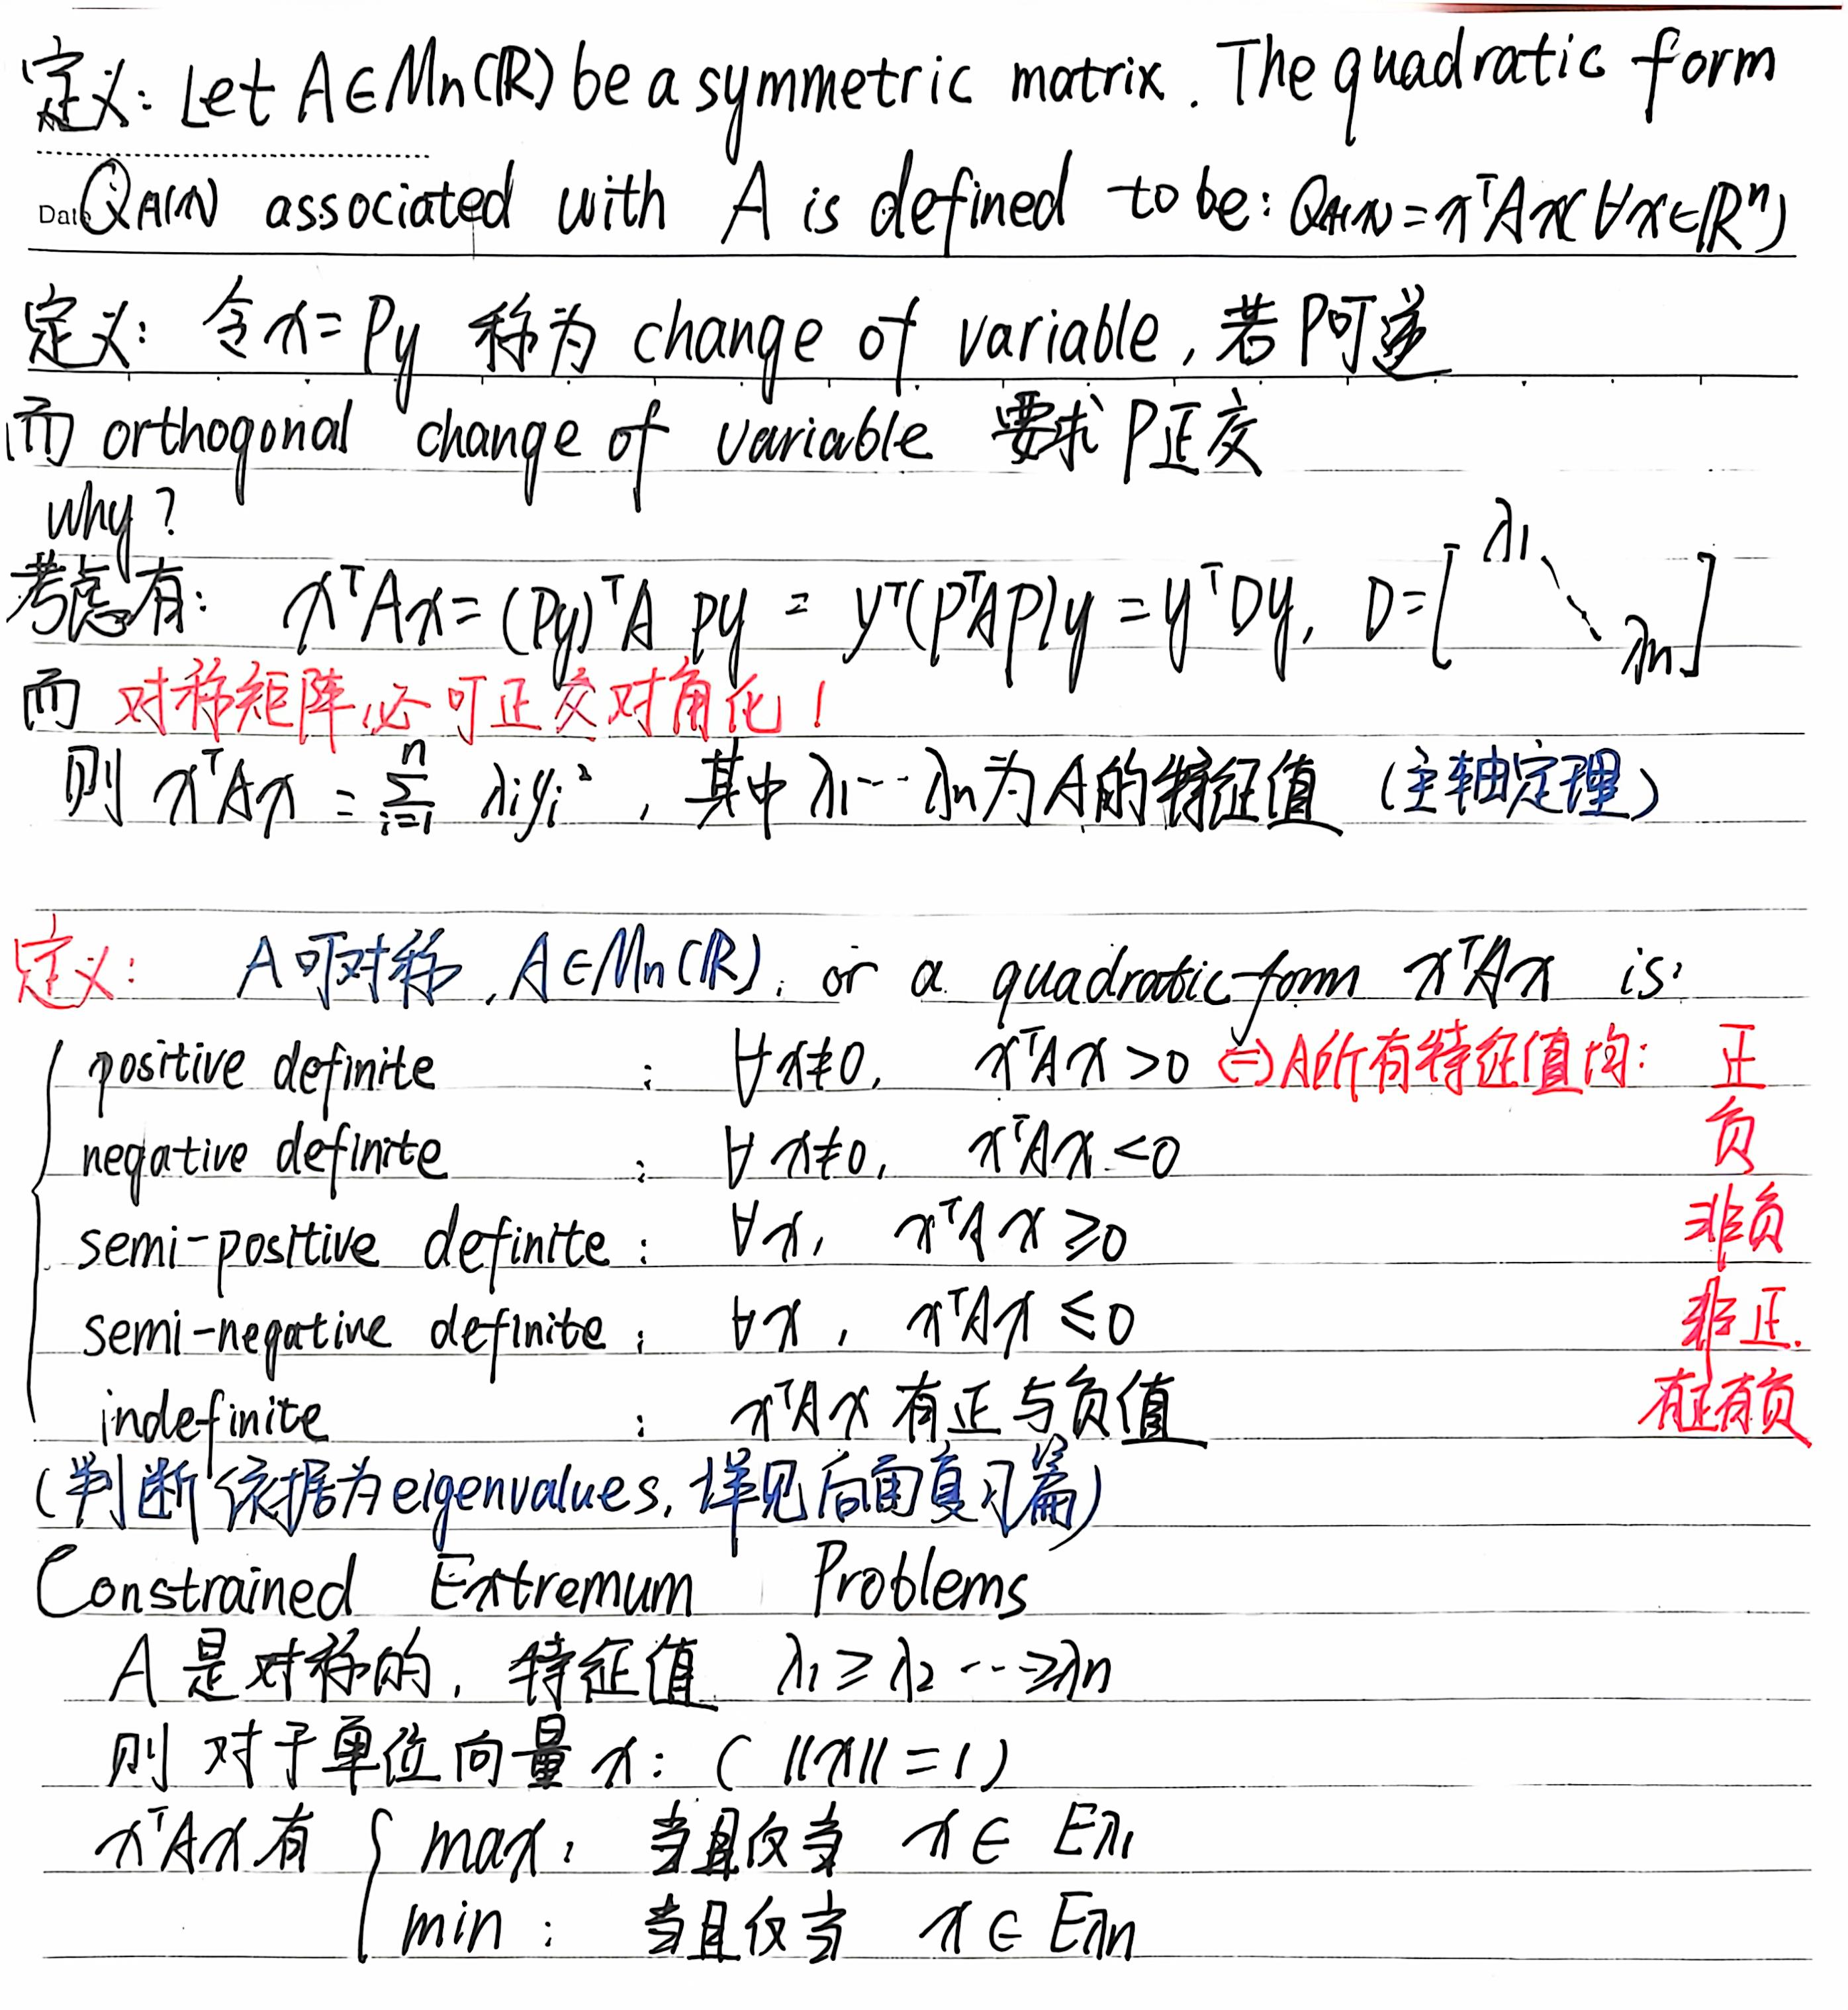 定义: Let A∈Mn(R) be a symmetric matrix. The quadratic form
Date QA(x) associated with A is defined to be: QA(x)=xᵀAx(∀x∈Rⁿ)
定义: 令x=Py 称为 change of variable, 若P可逆
而 orthogonal change of variable 要求P正交
why?
考虑有: xᵀAx=(Py)ᵀA Py = yᵀ(PᵀAP)y = yᵀDy, D=[λ1 ⋱ λn]
而 对称矩阵必可正交对角化!
则 xᵀAx = Σ_{i=1}^{n} λiyi², 其中λ1…λn为A的特征值 (主轴定理)
定义: A可对称, A∈Mn(R), or a quadratic form xᵀAx is:
positive definite : ∀x≠0, xᵀAx>0 ⇔A所有特征值均: 正
negative definite : ∀x≠0, xᵀAx<0 负
semi-positive definite: ∀x, xᵀAx≥0 非负
semi-negative definite: ∀x, xᵀAx≤0 非正.
indefinite : xᵀAx有正与负值 有正有负
(判断依据为eigenvalues, 详见后面复习篇)
Constrained Extremum Problems
A是对称的, 特征值 λ1≥λ2…≥λn
则对于单位向量x: (||x||=1)
xᵀAx有 { max: 当且仅当 x∈Eλ1
min: 当且仅当 x∈Eλn